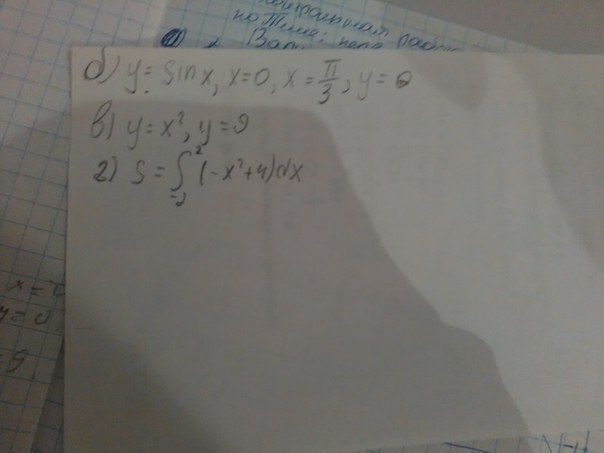 на Тише:
Вари
б) y = sin x, x=0, x = π/3, y = 0
в) y = x², y = 9
г) S = ∫₋₂² (-x²+4)dx
x =
y = 0
9